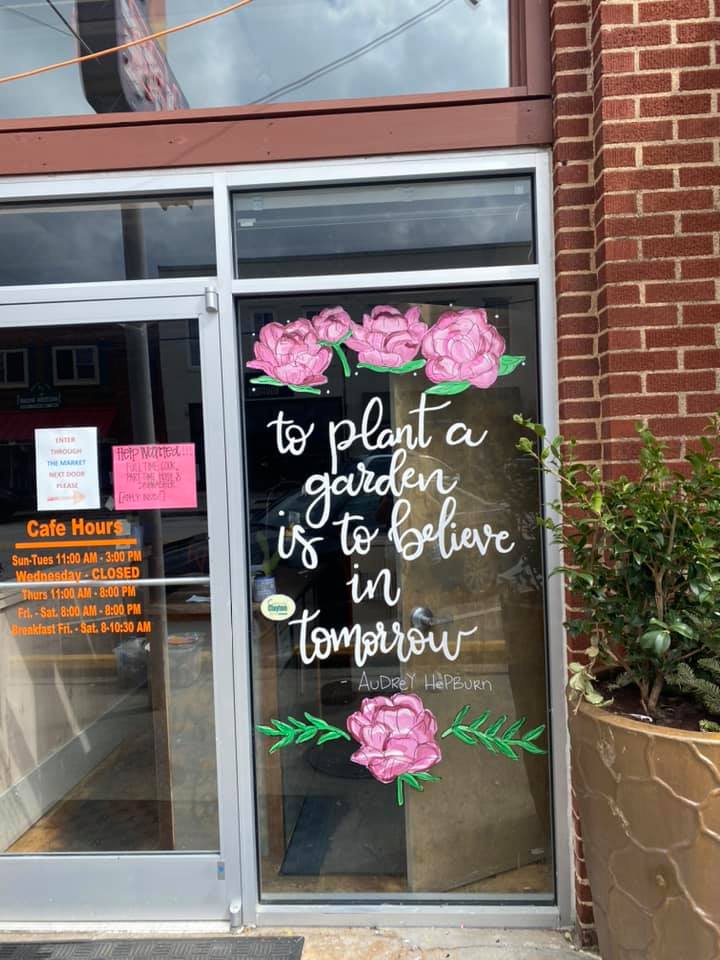 ENTER
THROUGH
THE MARKET
NEXT DOOR
PLEASE
Help Wanted!!!
FULL TIME COOK,
PART TIME HOST &
DISHWASHER
Cafe Hours
Sun-Tues 11:00 AM - 3:00 PM
Wednesday - CLOSED
Thurs 11:00 AM - 8:00 PM
Fri. - Sat. 8:00 AM - 8:00 PM
Breakfast Fri. - Sat. 8-10:30 AM
to plant a
garden
is to believe
in
tomorrow
AUDREY HEPBURN
Clayton